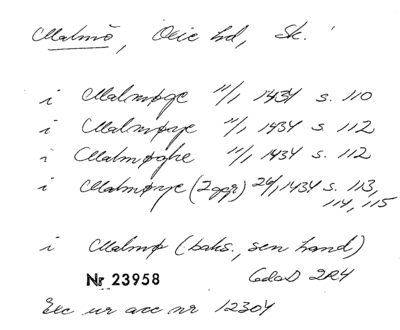 Malmö, Oxie hd, Sk.
i Malmøge 11/1 1434 s. 110
i Malmøye 11/1 1434 s. 112
i Malmøghe 11/1 1434 s. 112
i Malmøye (2 ggr) 26/1 1434 s. 113,
114, 115
i Malmø (baks., sen hand)
Nr 23958 GdaD 2R4
Exc ur acc nr 12304